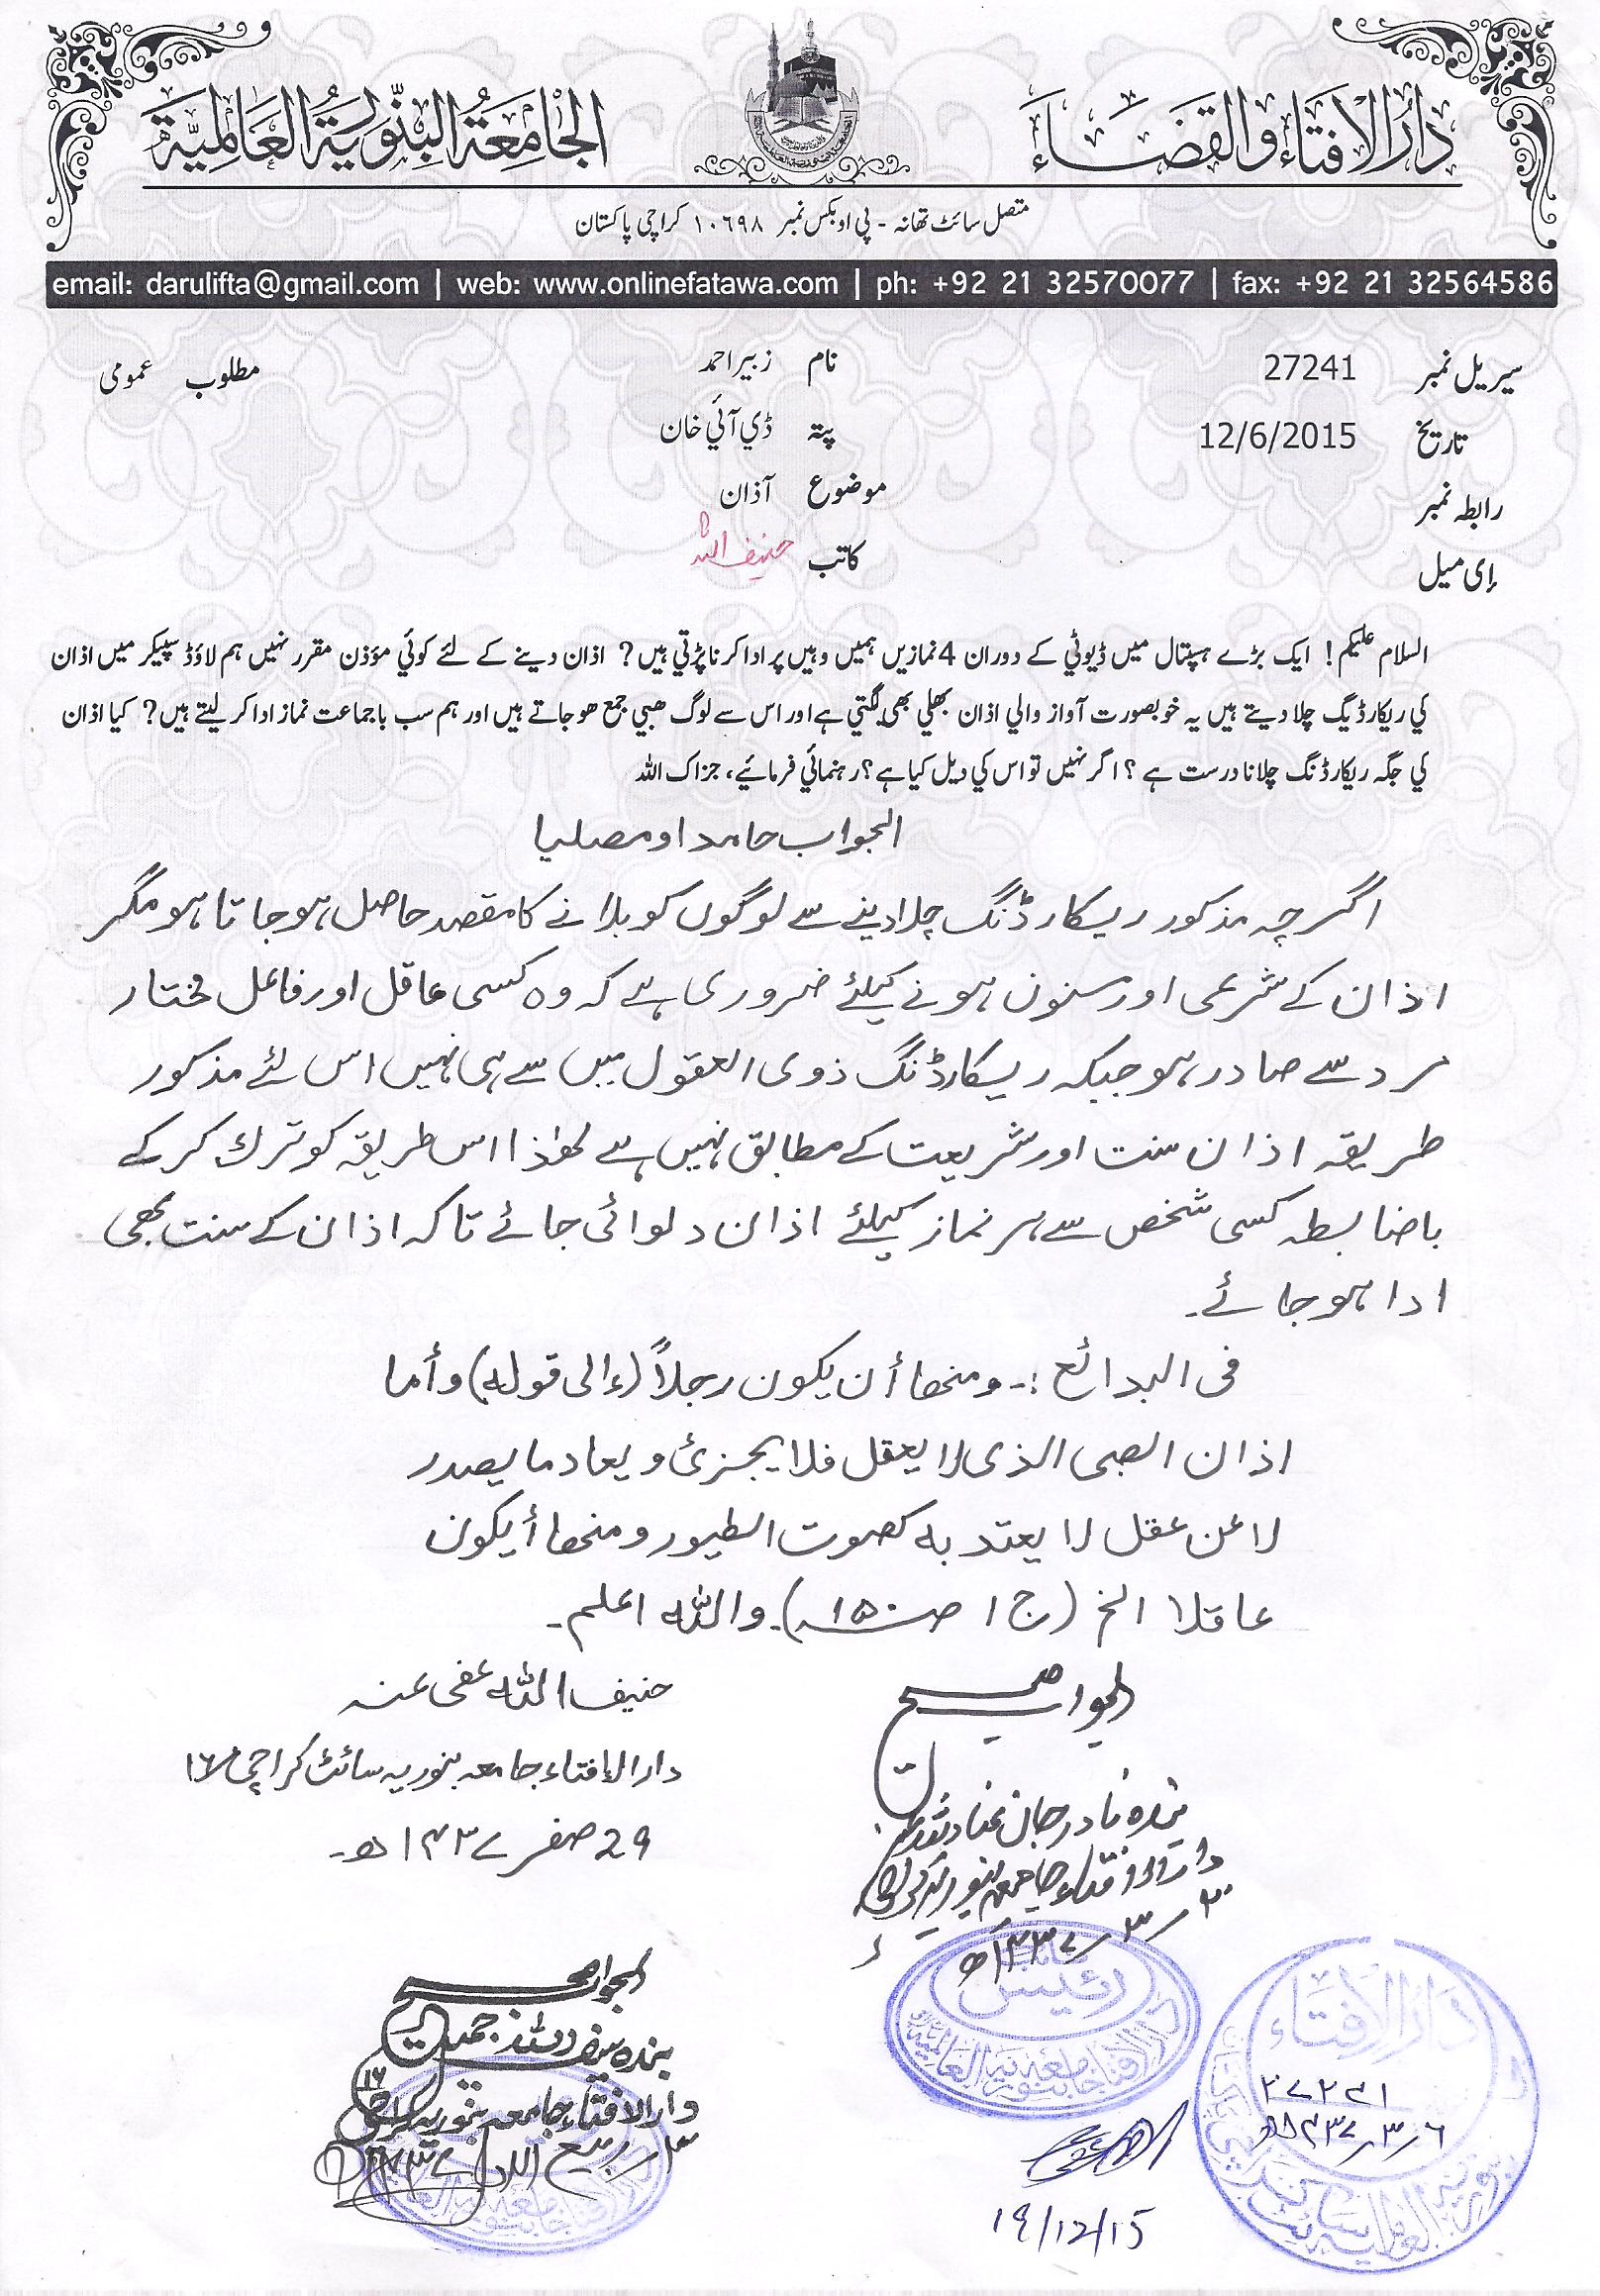 دار الافتاء والقضاء
الجامعة البنورية العالمية
متصل سائٹ تھانہ - پی او بکس نمبر ۱۰۶۹۸ کراچی پاکستان
email: darulifta@gmail.com | web: www.onlinefatawa.com | ph: +92 21 32570077 | fax: +92 21 32564586
سیریل نمبر 27241 نام زبیر احمد مطلوب عمومی
تاریخ 12/6/2015 پتہ ڈي آئي خان
رابطہ نمبر موضوع آذان
إی میل کاتب حنیف اللہ
السلام علیکم! ایک بڑے ہسپتال میں ڈیوٹي کے دوران 4 نمازیں ہمیں وہیں پر ادا کرنا پڑتي ہیں? اذان دینے کے لئے کوئي مؤذن مقرر نہیں ہم لاؤڈ سپیکر میں اذان
کي ریکارڈیگ چلا دیتے ہیں یہ خوبصورت آواز والي اذان بھلي بھي لگتي ہے اور اس سے لوگ ھبي جمع ھو جاتے ہیں اور ہم سب با جماعت نماز ادا کر لیتے ہیں? کیا اذان
کي جگہ ریکارڈنگ چلانا درست ہے ؟ اگر نہیں تو اس کي دیل کیا ہے؟ رہنمائي فرمائیے، جزاک اللہ
الجواب حامدا ومصلیا
اگرچہ مذکور ریکارڈنگ چلا دینے سے لوگوں کو بلانے کا مقصد حاصل ہو جاتا ہو مگر
اذان کے شرعی اور مسنون ہونے کیلئے ضروری ہے کہ وہ کسی عاقل اور فاعل مختار
مرد سے صادر ہو جبکہ ریکارڈنگ ذوی العقول میں سے ہی نہیں اس لئے مذکور
طریقہ اذان سنت اور شریعت کے مطابق نہیں ہے لھٰذا اس طریقہ کو ترک کر کے
باضابطہ کسی شخص سے ہر نماز کیلئے اذان دلوائی جائے تاکہ اذان کے سنت بھی
ادا ہو جائے۔
فی البدائع :۔ ومنها أن یکون رجلاً (إلی قوله) وأما
اذان الصبی الذی لا یعقل فلا یجزئ ویعاد ما یصدر
لا عن عقل لا یعتد به کصوت الطیور ومنها أیکون
عاقلا الخ (ج ۱ صـ ۱۵۰)۔ واللہ اعلم۔
حنیف اللہ عفی عنہ
دار الإفتاء جامعہ بنوریہ سائٹ کراچی ۱۶
29 صفر ۱۴۳۷ھ۔
الجواب صحیح
بندہ نادر جان
دار الافتاء جامعہ بنوریہ کراچی
۳/۳/۱۴۳۷ھ
نائب
رئیس
دار الافتاء جامعہ بنوریہ العالمیہ
19/12/15
الجواب صحیح
بندہ سیف اللہ جمیل
دار الافتاء جامعہ بنوریہ کراچی ۱۶
ربیع الاول ۱۴۳۷ھ
دار الافتاء
۲۷۲۴۱
۶/۳/۱۴۳۷ھ